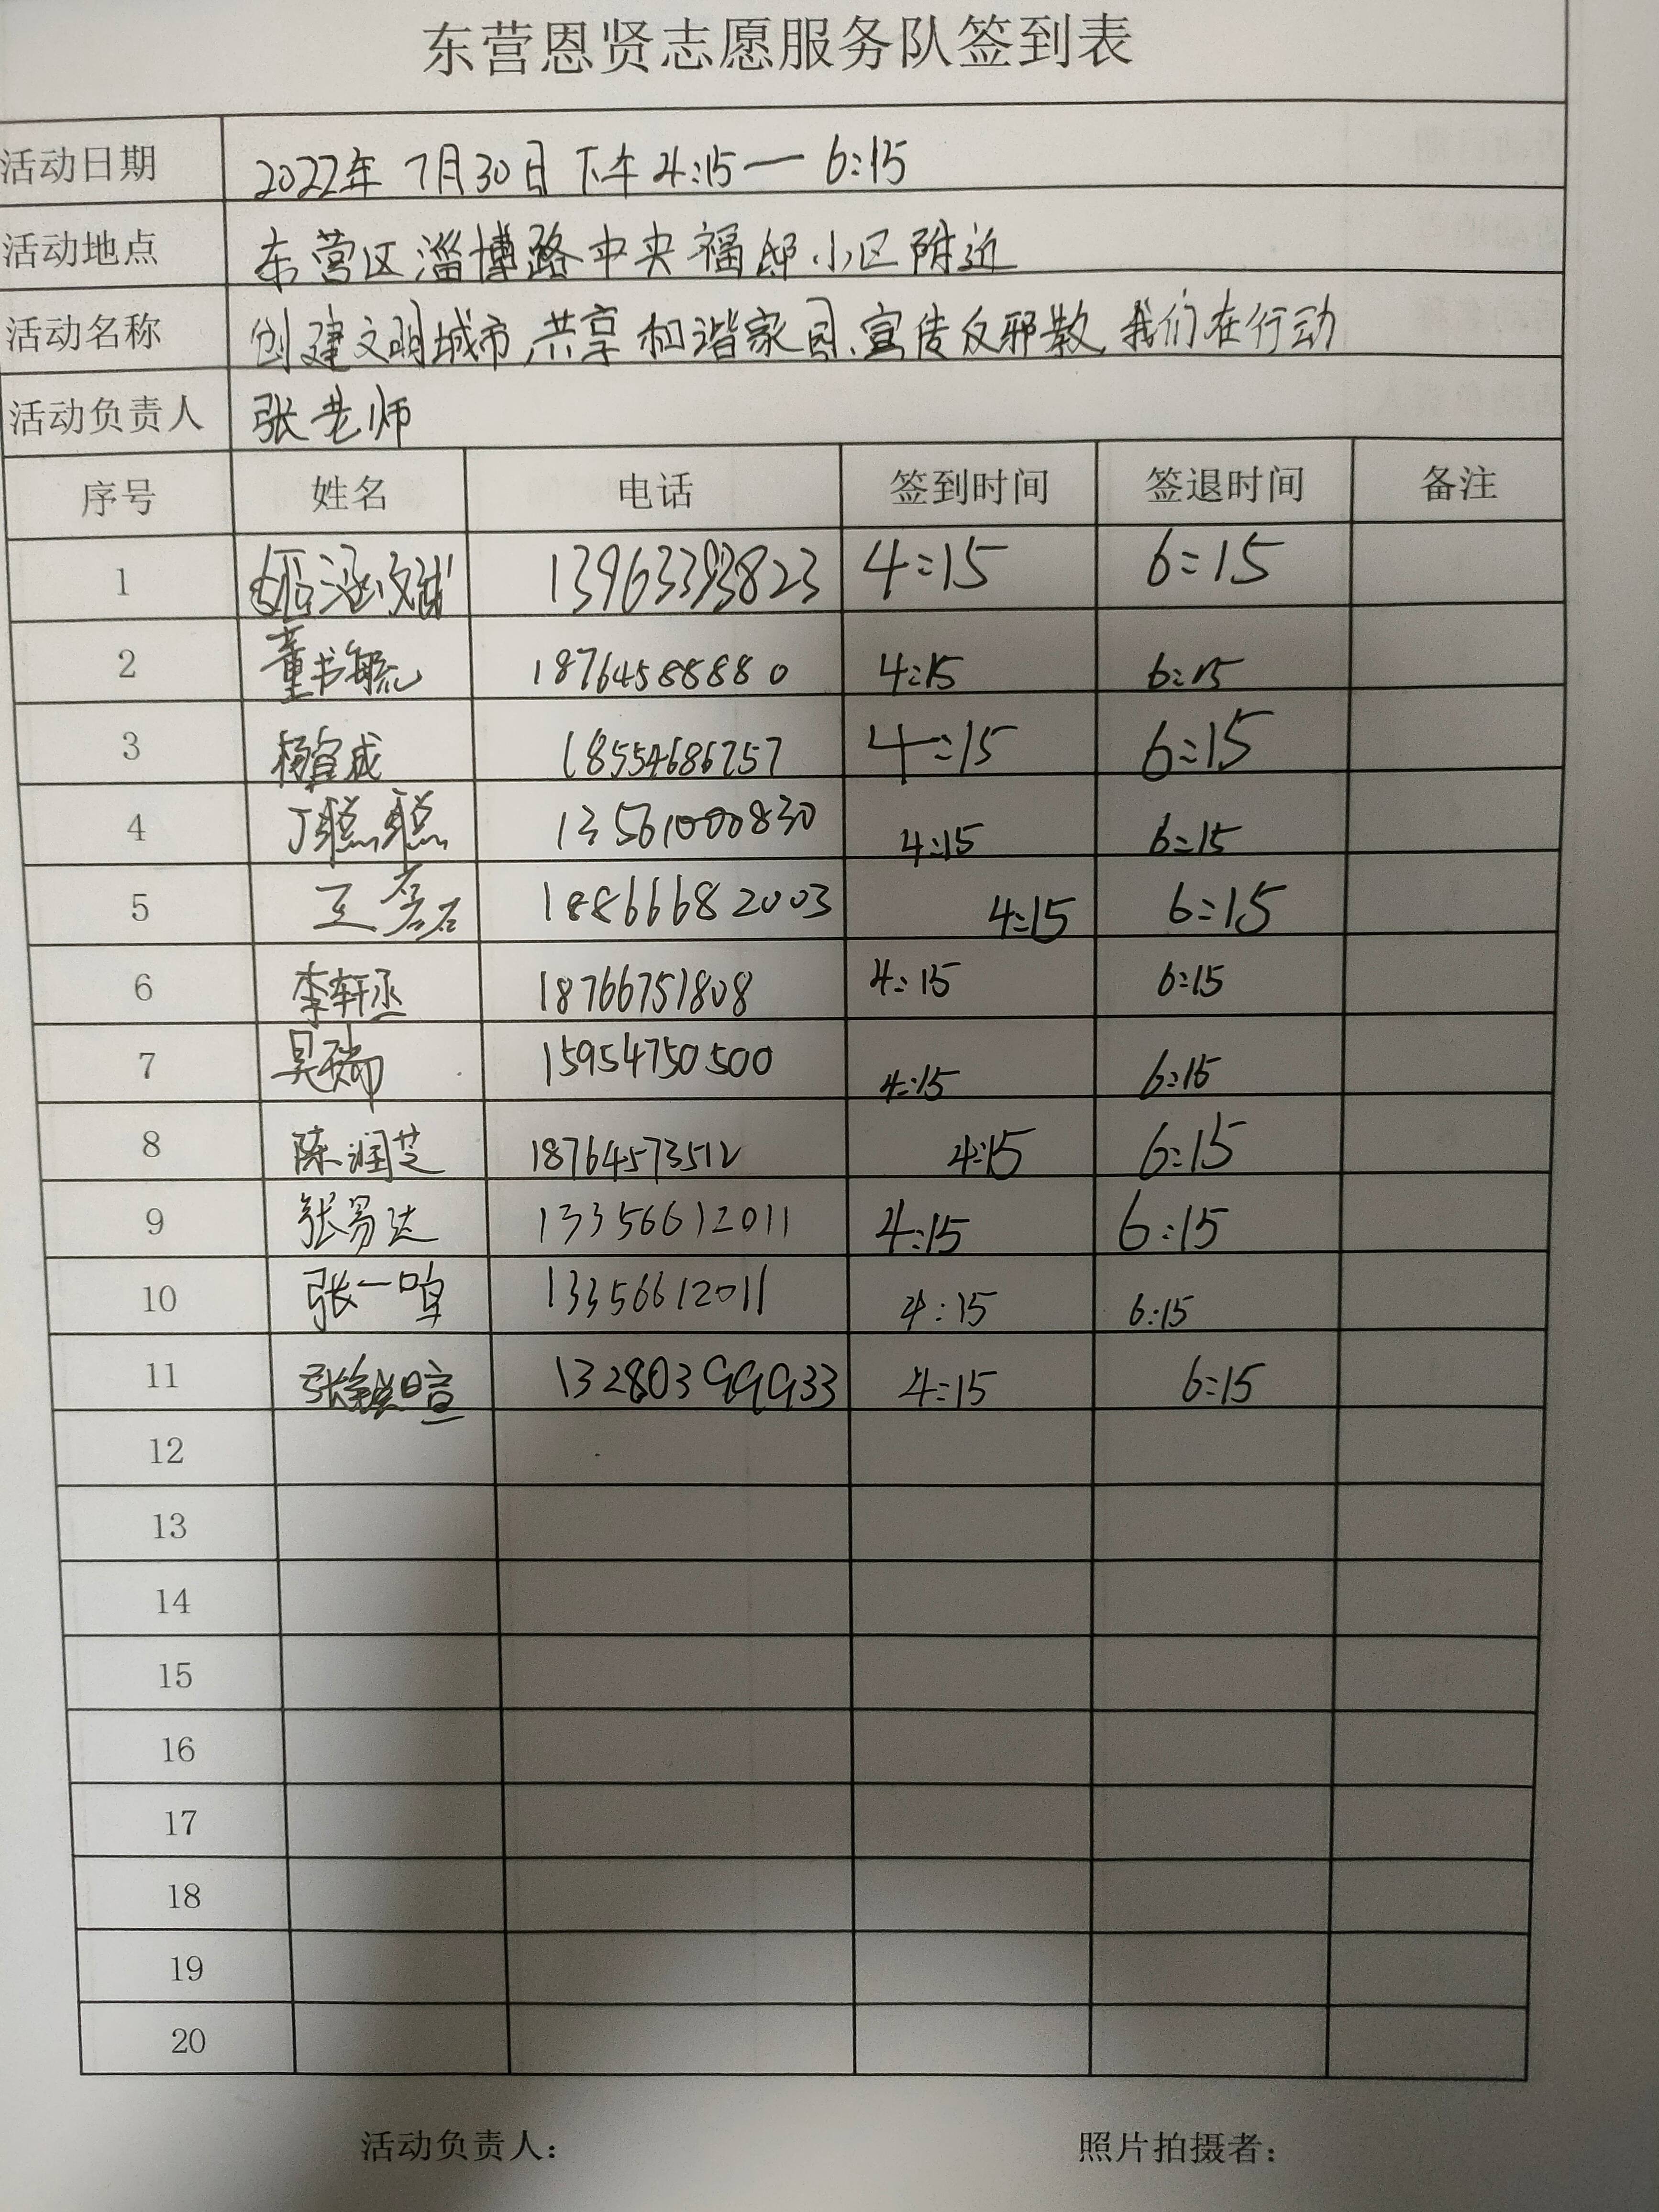 东营恩贤志愿服务队签到表
活动日期 2022年 7月30日 下午 4:15— 6:15
活动地点 东营区淄博路中央福邸小区附近
活动名称 创建文明城市,共享和谐家园、宣传反邪教,我们在行动
活动负责人 张老师
序号 姓名 电话 签到时间 签退时间 备注
1 13963393823 4:15 6:15
2 董书毓 18764588880 4:15 6:15
3 杨宜成 18554686757 4:15 6:15
4 丁聪聪 13561000830 4:15 6:15
5 王 18866682003 4:15 6:15
6 李轩丞 18766751808 4:15 6:15
7 吴瑞 15954750500 4:15 6:15
8 陈润芝 18764573512 4:15 6:15
9 张易达 13356612011 4:15 6:15
10 张一啅 13356612011 4:15 6:15
11 张 13280399933 4:15 6:15
12
13
14
15
16
17
18
19
20
活动负责人： 照片拍摄者：